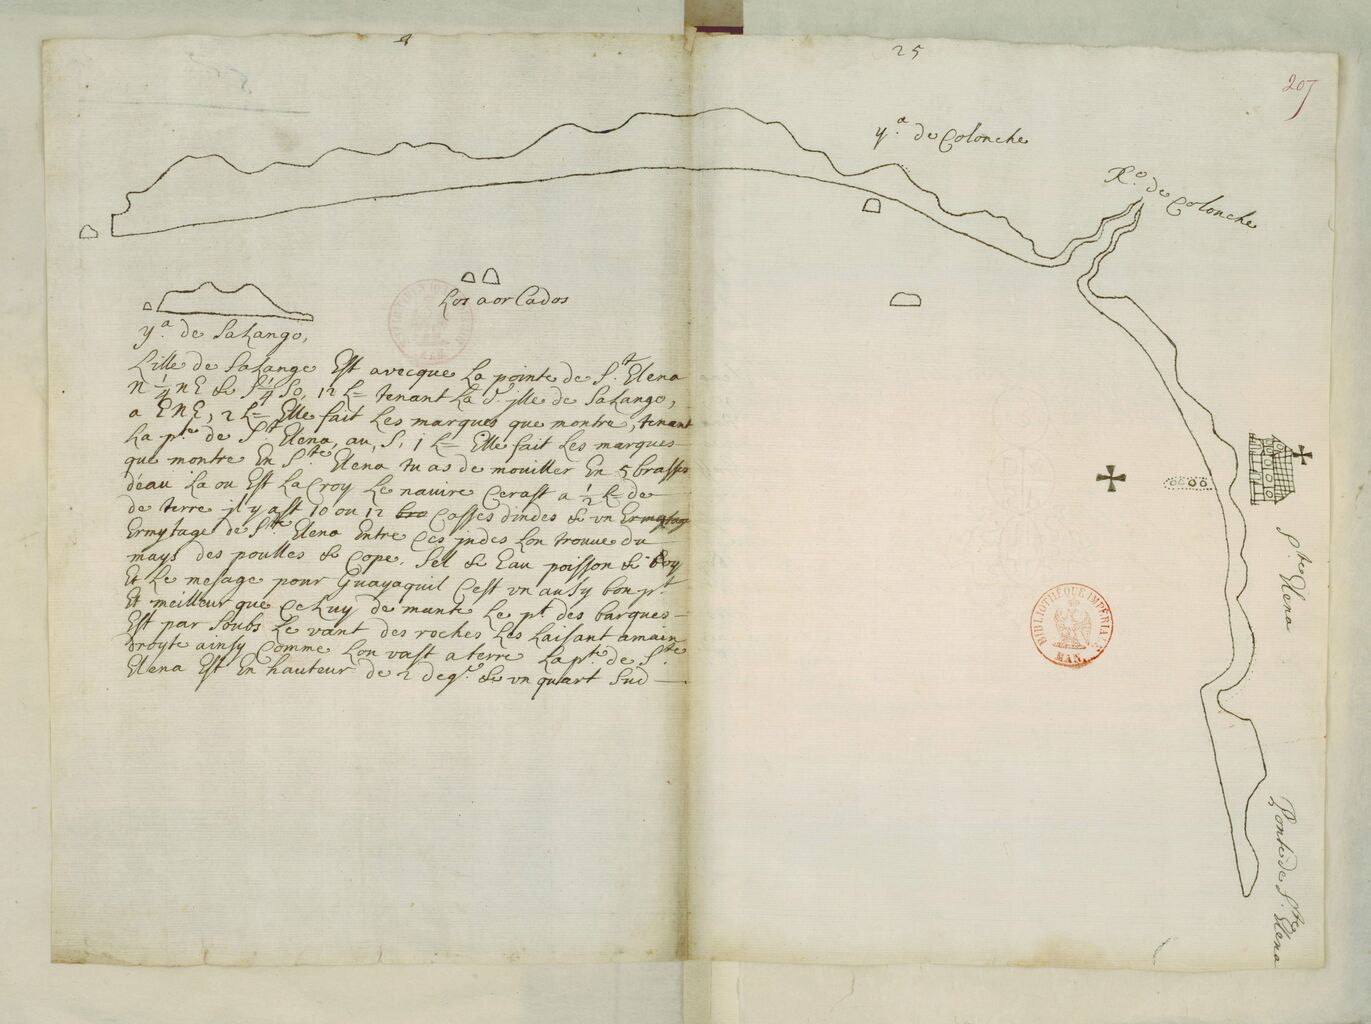 25
207
yª. de Colonche
Rº. de Colonche
Los aorCados
yª. de SaLango,
Lille de SaLange Est avecque La pointe de Sᵗ. Elena
N ¼ NE & S ¼ So, 12 L= tenant La d. ylle de SaLango,
a ENE, 2 L= Elle fait Les marques que montre, tenant
La pᵗᵉ de Sᵗᵉ. Elena, au, S, 1 L= Elle fait Les marques
que montre En Sᵗᵉ. Elena tu as de mouiller En 5 brasses
déau La ou Est La Croy Le navire Cerast a ½ L= de
de terre jl y ast 10 ou 12 Casses dindes & vn
Ermytage de Sᵗᵉ. Elena Entre Ces jndes Lon trouve du
mays des poulles & Cope, Sel & Eau poisson & boy
Et Le mesage pour Guayaquil Cest vn ausy bon pᵗ.
Et meilleur que CeLuy de mante Le pᵗ. des barques
Est par Soubs Le vant des roches Les Laisant amain
droyte ainsy Comme Lon vast a terre La pᵗᵉ. de Sᵗᵉ.
Elena Est En hauteur de 2 degˢ. & vn quart Sud
Sᵗᵉ Elena
Ponte de Sᵗᵉ. Elena
BIBLIOTHÈQUE IMPÉRIALE
MAN.